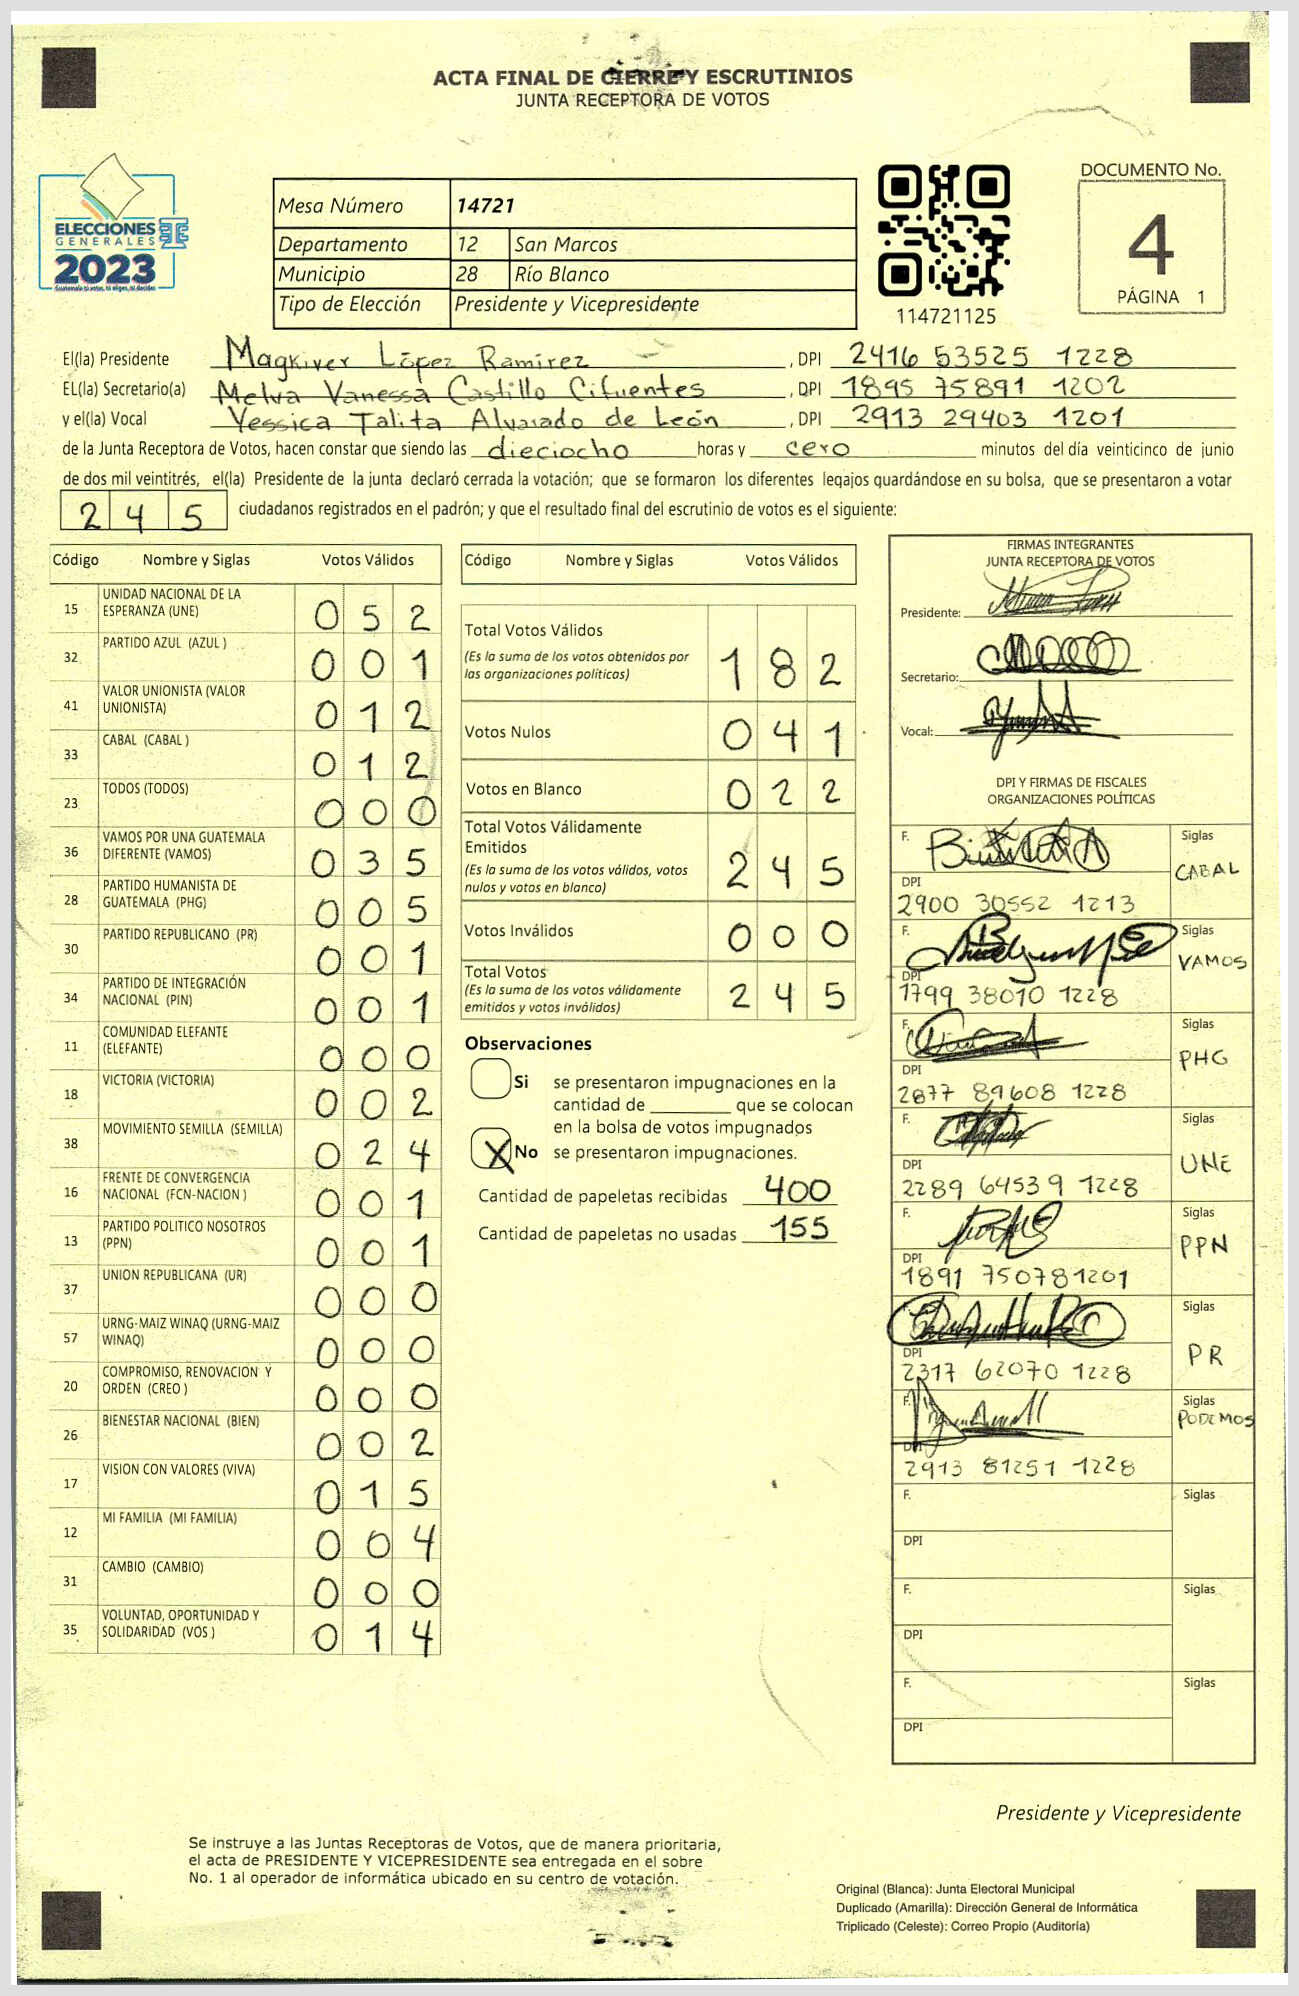 ACTA FINAL DE CIERRE Y ESCRUTINIOS
JUNTA RECEPTORA DE VOTOS
ELECCIONES
GENERALES
2023
Guatemala tú votas, tú eliges, tú decides
Mesa Número 14721
Departamento 12 San Marcos
Municipio 28 Río Blanco
Tipo de Elección Presidente y Vicepresidente
114721125
DOCUMENTO No.
4
PÁGINA 1
El(la) Presidente Magkiver López Ramírez , DPI 2416 53525 1228
EL(la) Secretario(a) Melva Vanessa Castillo Cifuentes , DPI 1895 75891 1202
y el(la) Vocal Yessica Talita Alvarado de León , DPI 2913 29403 1201
de la Junta Receptora de Votos, hacen constar que siendo las dieciocho horas y cero minutos del día veinticinco de junio
de dos mil veintitrés, el(la) Presidente de la junta declaró cerrada la votación; que se formaron los diferentes legajos guardándose en su bolsa, que se presentaron a votar
245 ciudadanos registrados en el padrón; y que el resultado final del escrutinio de votos es el siguiente:
Código Nombre y Siglas Votos Válidos
15 UNIDAD NACIONAL DE LA ESPERANZA (UNE) 052
32 PARTIDO AZUL (AZUL ) 001
41 VALOR UNIONISTA (VALOR UNIONISTA) 012
33 CABAL (CABAL ) 012
23 TODOS (TODOS) 000
36 VAMOS POR UNA GUATEMALA DIFERENTE (VAMOS) 035
28 PARTIDO HUMANISTA DE GUATEMALA (PHG) 005
30 PARTIDO REPUBLICANO (PR) 001
34 PARTIDO DE INTEGRACIÓN NACIONAL (PIN) 001
11 COMUNIDAD ELEFANTE (ELEFANTE) 000
18 VICTORIA (VICTORIA) 002
38 MOVIMIENTO SEMILLA (SEMILLA) 024
16 FRENTE DE CONVERGENCIA NACIONAL (FCN-NACION ) 001
13 PARTIDO POLITICO NOSOTROS (PPN) 001
37 UNION REPUBLICANA (UR) 000
57 URNG-MAIZ WINAQ (URNG-MAIZ WINAQ) 000
20 COMPROMISO, RENOVACION Y ORDEN (CREO ) 000
26 BIENESTAR NACIONAL (BIEN) 002
17 VISION CON VALORES (VIVA) 015
12 MI FAMILIA (MI FAMILIA) 004
31 CAMBIO (CAMBIO) 000
35 VOLUNTAD, OPORTUNIDAD Y SOLIDARIDAD (VOS ) 014
Código Nombre y Siglas Votos Válidos
Total Votos Válidos
(Es la suma de los votos obtenidos por
las organizaciones políticas) 182
Votos Nulos 041
Votos en Blanco 022
Total Votos Válidamente
Emitidos
(Es la suma de los votos válidos, votos
nulos y votos en blanco) 245
Votos Inválidos 000
Total Votos
(Es la suma de los votos válidamente
emitidos y votos inválidos) 245
Observaciones
Si se presentaron impugnaciones en la
cantidad de ________ que se colocan
en la bolsa de votos impugnados
X No se presentaron impugnaciones.
Cantidad de papeletas recibidas 400
Cantidad de papeletas no usadas 155
FIRMAS INTEGRANTES
JUNTA RECEPTORA DE VOTOS
Presidente:
Secretario:
Vocal:
DPI Y FIRMAS DE FISCALES
ORGANIZACIONES POLÍTICAS
F. Siglas
CABAL
DPI
2900 30552 1213
F. Siglas
VAMOS
DPI
1799 38010 1228
F. Siglas
PHG
DPI
2877 89608 1228
F. Siglas
UNE
DPI
2289 64539 1228
F. Siglas
PPN
DPI
1891 75078 1201
F. Siglas
PR
DPI
2317 62070 1228
F. Siglas
PODEMOS
DPI
2913 81251 1228
F. Siglas
DPI
F. Siglas
DPI
F. Siglas
DPI
Presidente y Vicepresidente
Se instruye a las Juntas Receptoras de Votos, que de manera prioritaria,
el acta de PRESIDENTE Y VICEPRESIDENTE sea entregada en el sobre
No. 1 al operador de informática ubicado en su centro de votación.
Original (Blanca): Junta Electoral Municipal
Duplicado (Amarilla): Dirección General de Informática
Triplicado (Celeste): Correo Propio (Auditoría)